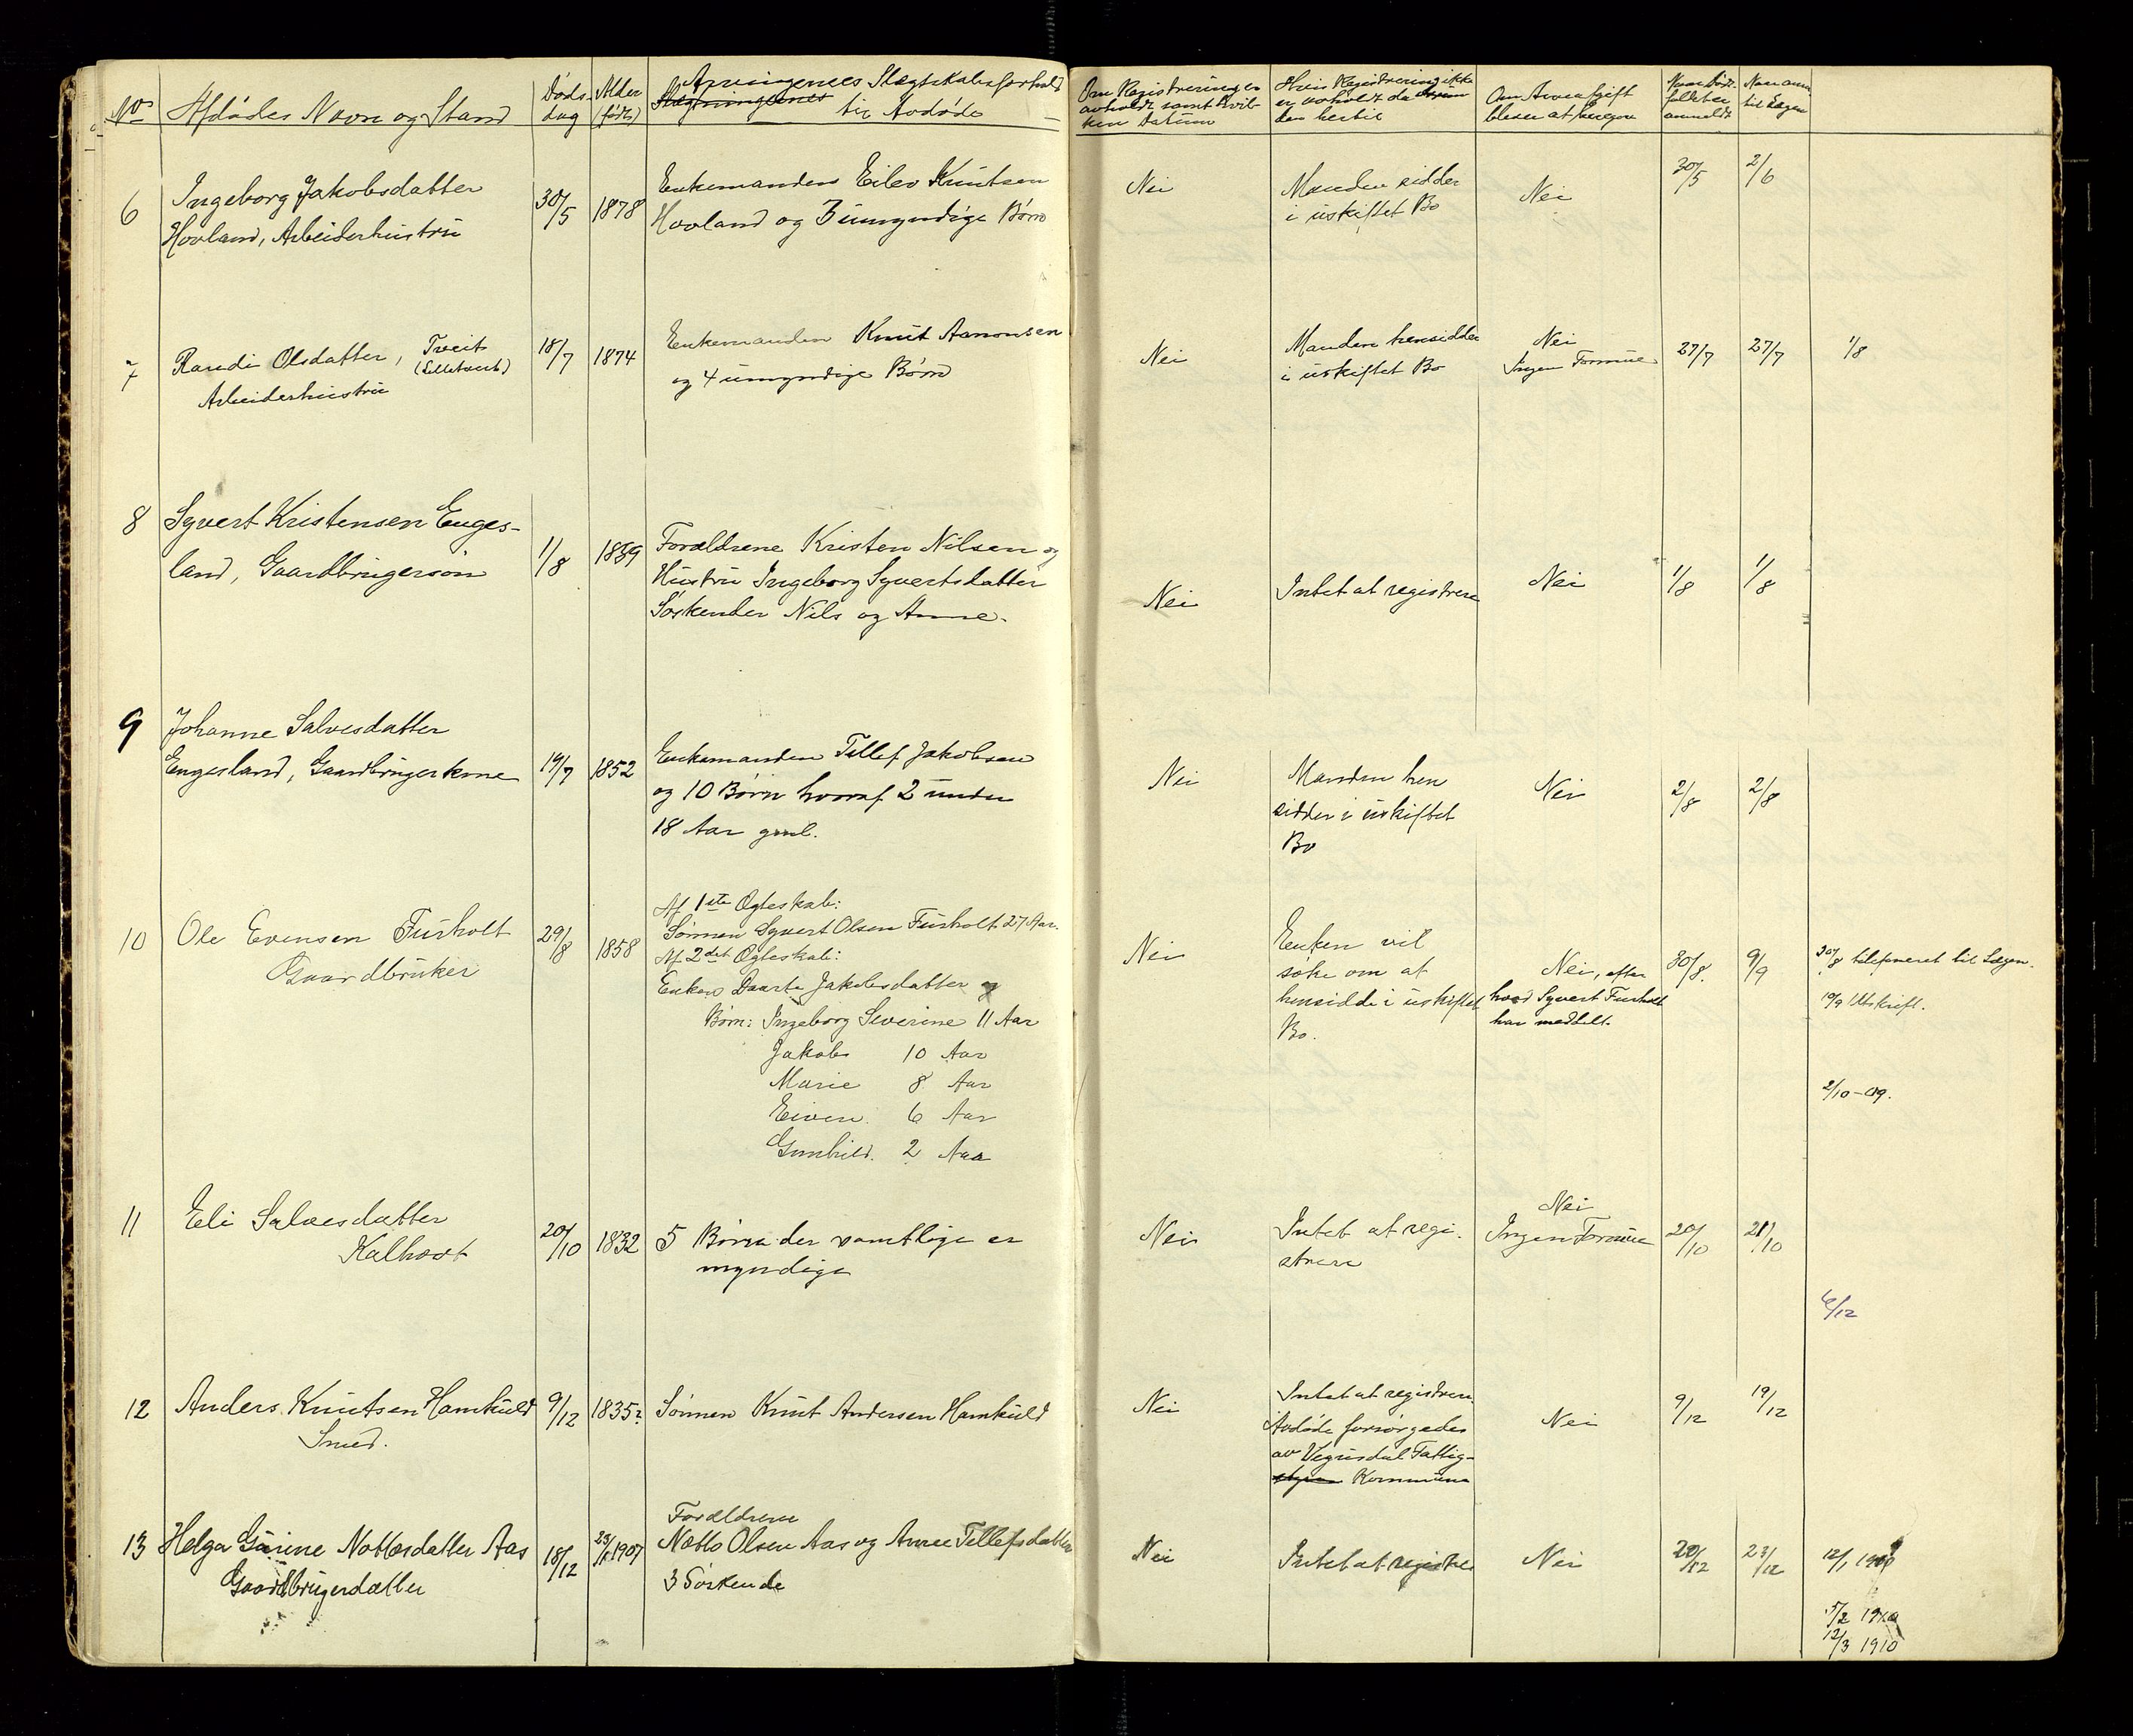 No Afdødes Navn og Stand
Døds-
dag
Alder
(født)
Arvingenes Slægtskabsforhold
til Avdøde
Om Registrering er
avholdt samt hvil-
ken Datum
Hvis Registrering ikke
er avholdt da
den hertil
Om Arveafgift
bliver at beregne
Naar døds-
faldet er
anmeldt
Naar anm.
til
6
Ingeborg Jakobsdatter
Hovland, Arbeiderhustru
30/5
1878
Enkemanden Eilev Knutsen
Hovland og 3 umyndige Børn
Nei
Manden sidder
i uskiftet Bo
Nei
30/5
2/6
7
Randi Olsdatter, Tveit
Arbeiderhustru
18/7
1874
Enkemanden Knut Aanonsen
og 4 umyndige Børn
Nei
Manden hensidder
i uskiftet Bo
Nei
Ingen Formue
27/7
27/7
1/8
8
Syvert Kristensen Enges-
land, Gaardbrugersøn
1/8
Forældrene Kristen Nilsen og
Hustru Ingeborg Syvertsdatter
Søskender Nils og Anne.
Nei
Intet at registrere
Nei
1/8
1/8
9
Johanne Salvesdatter
Engesland, Gaardbrugerkone
19/7
1852
Enkemanden Tellef Jakobsen
og 10 Børn hvoraf 2 under
18 Aar gml.
Nei
Manden hen
sidder i uskiftet
Bo
Nei
2/8
2/8
10
Ole Evensen Furholt
Gaardbruker
29/8
1858
Af 1ste Ægteskab:
Sønnen Syvert Olsen Furholt 27 Aar.
Af 2det Ægteskab:
Enken Daarte Jakobsdatter og
Børn: Ingeborg Severine 11 Aar
Jakob 10 Aar
Marie 8 Aar
Eiven 6 Aar
Gunhild. 2 Aar
Nei
Enken vil
søke om at
hensidde i uskiftet
Bo.
Nei, efter
hvad Syvert Furholt
har meddelt.
30/8.
9/9
30/8 telefoneret til
10/9 Utskrift.
2/10-09.
11
Eli Salvesdatter
Kalhovt
20/10
1832
5 Børn der samtlige er
myndige
Nei
Intet at regi-
strere
Nei
Ingen Formue
20/10
21/10
6/12
12
Anders Knutsen Hamkuld
Smed.
9/12
1835?
Sønnen Knut Andersen Hamkuld
Nei
Intet at registrere.
Avdøde forsørgedes
av Vegusdal Fattig-
Kommune
Nei
9/12
19/12
13
Helga Gurine Nottosdatter Aas
Gaardbrugerdatter
18/12
1907
Forældrene
Notto Olsen Aas og Anne Tellefsdatter
3 Søskende
Nei
Intet at registre
Nei
20/12
23/12
12/1 1910
5/2 1910
12/3 1910